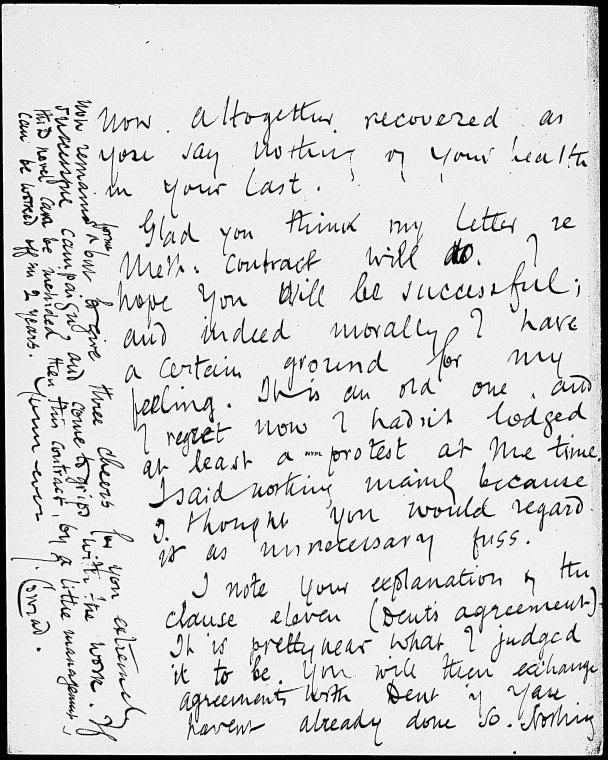 now altogether recovered as
you say nothing of your health
in your last.
Glad you think my letter re
Meth: contract will do. I
hope you will be successful;
and indeed morally I have
a certain ground for my
feeling. It is an old one and
I regret now I hadn't lodged
at least a protest at the time.
NYPL
I said nothing mainly because
I thought you would regard
it as unnecessary fuss.
I note your explanation of the
clause eleven (Dent's agreement)
It is pretty near what I judged
it to be. You will then exchange
agreements with Dent if you
havent already done so. Nothing
now remains but to give three cheers for you extremely
successful campaign and come to grips with the work. If
this novel can be included then this contract, by a little management,
can be worked off in 2 years. Yours ever J. Conrad.